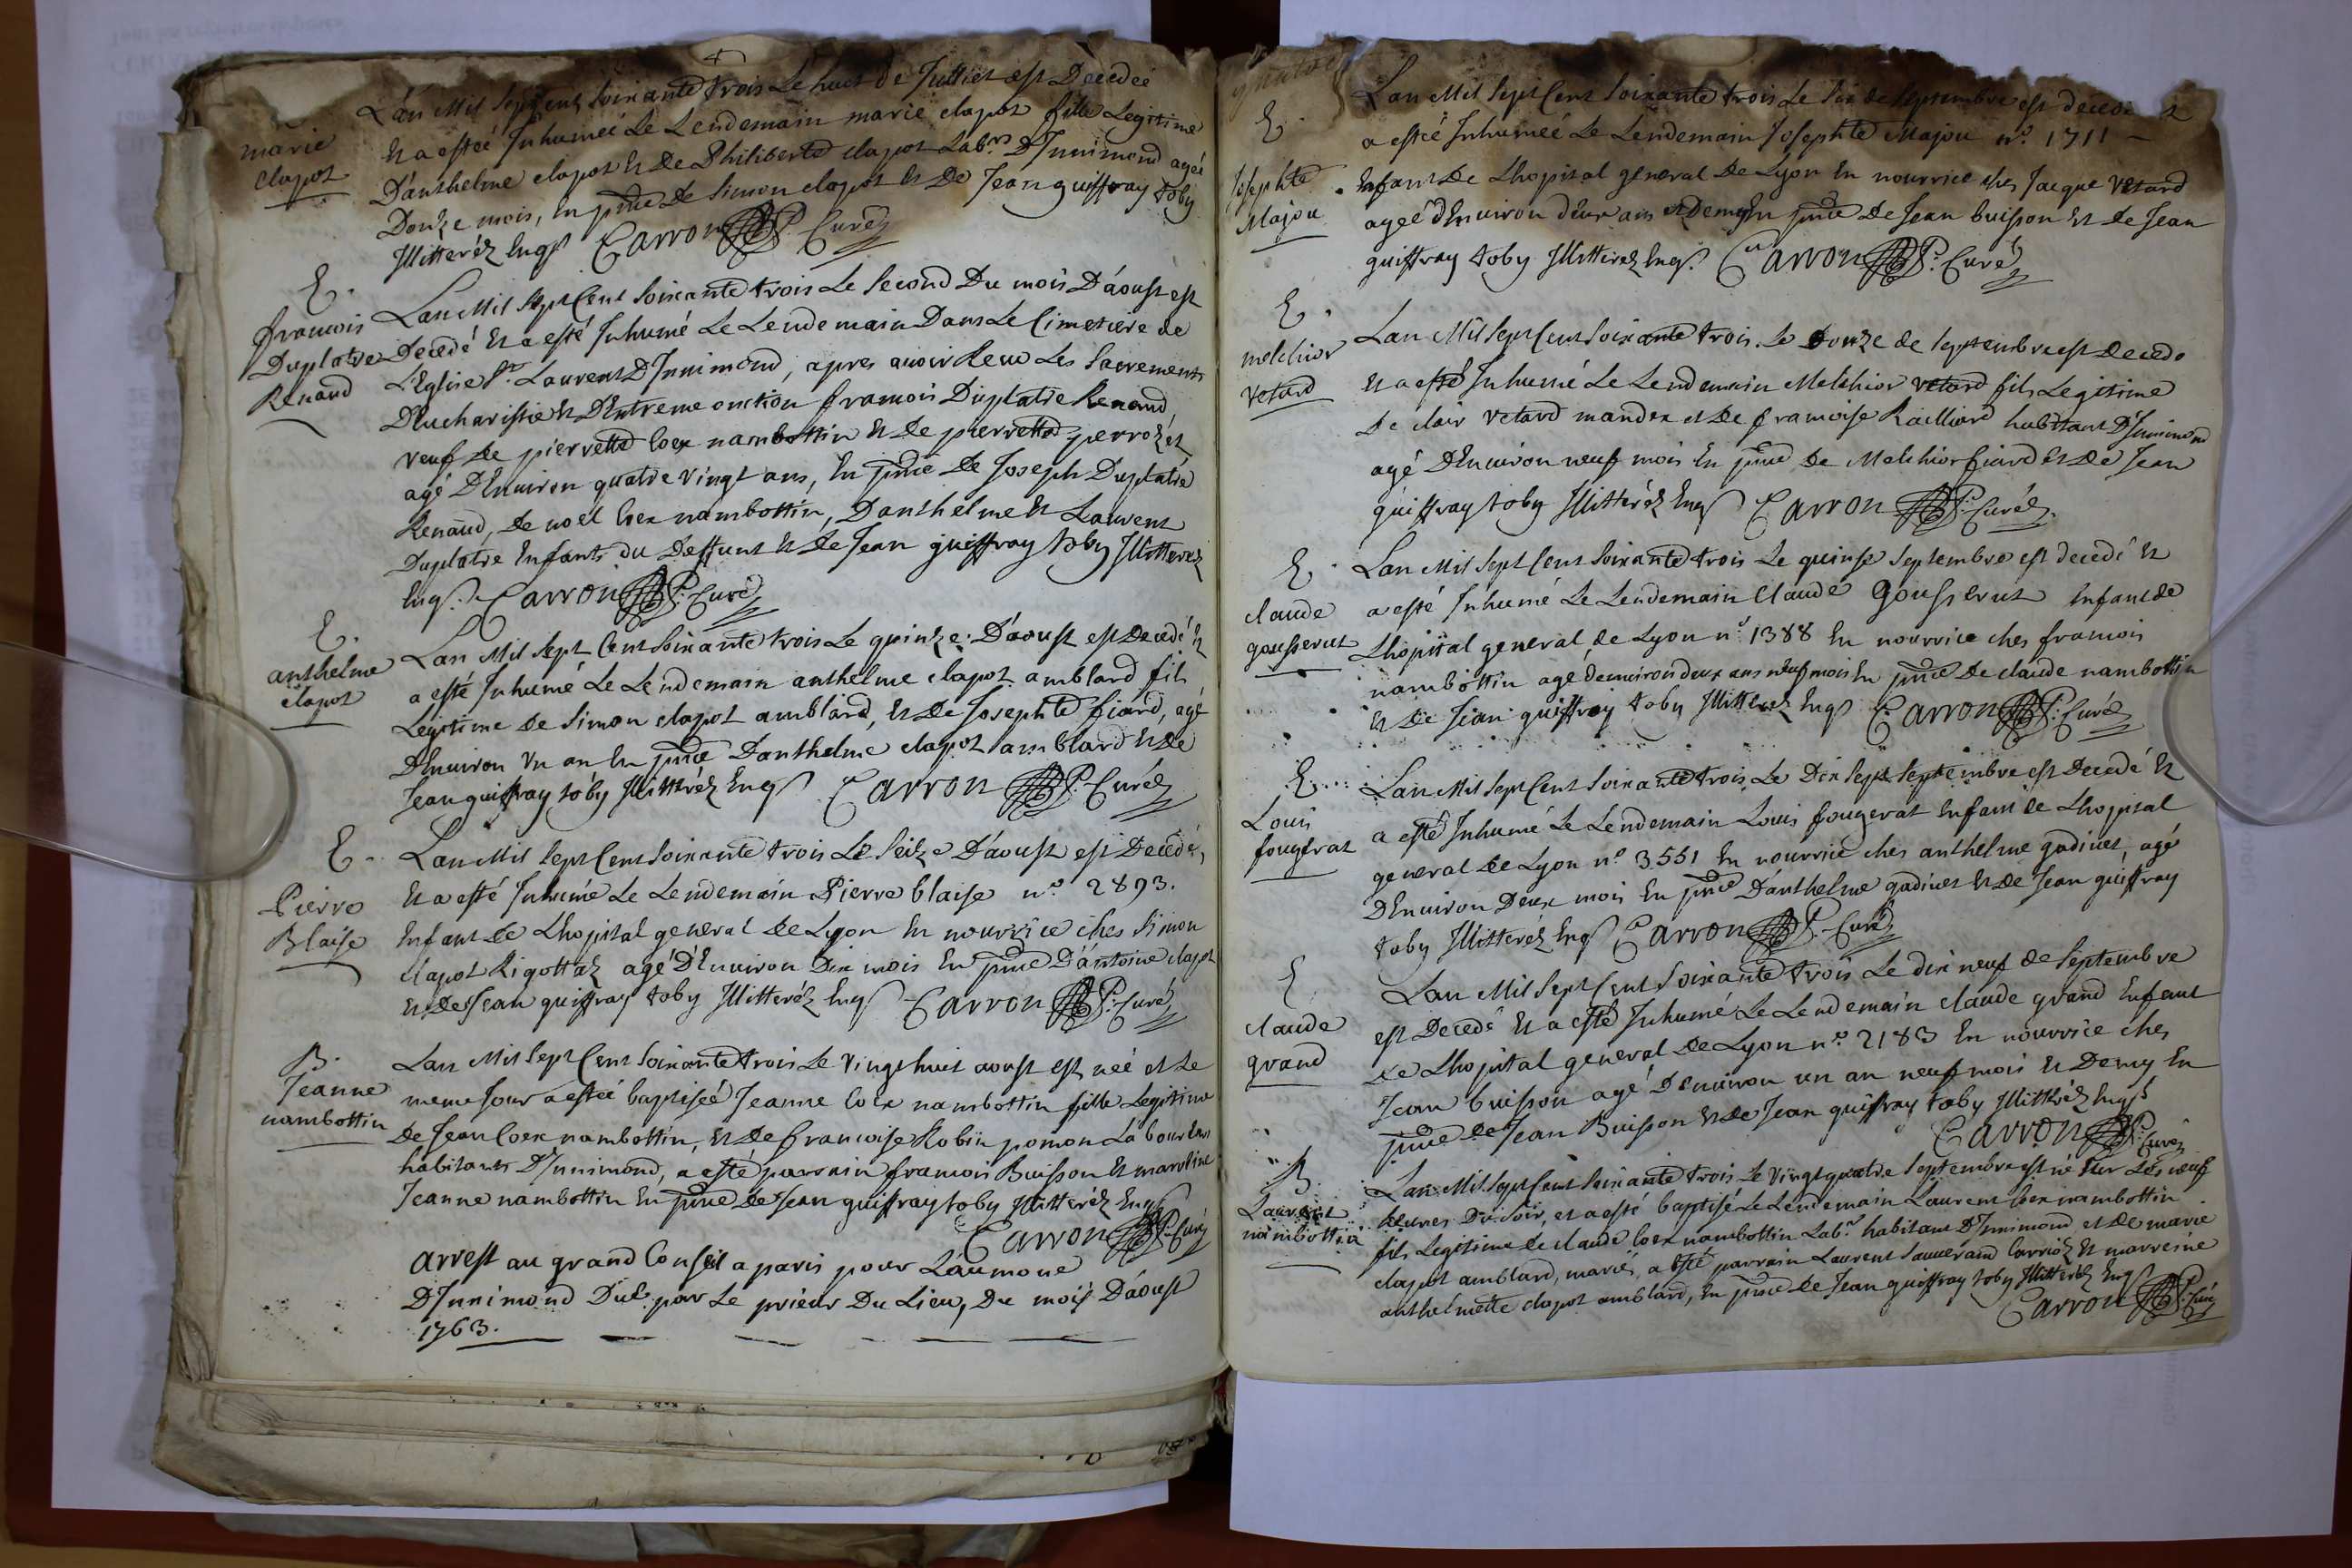 marie
clapot
L'an Mil Sept Cent Soixante trois Le huit de Juilliet est Decedeé
Et a esteé Inhumeé Le Lendemain marie clapot fille Legitime
D'anthelme clapot Et de Philiberte clapot Lab.rs D'Innimond ageé
Douze mois, En pnce De Simon clapot Et De Jean guiffray toby
Illitteréz Enqs Carron P. Curé
E.
francois
Duplatre
Renaud
Lan Mil Sept Cent Soixante trois Le Second Du mois D'áoust est
Decedé Et a esté Inhumé Le Lendemain Dans Le Cimetiere de
L'Eglise St. Laurent D'Innimond, apres avoir Receu Les Sacrements
D'Eucharistie Et D'Extreme onction francois Duplatre Renaud,
veuf de pierrette Coex nambottin Et De pierrette perrozet,
agé D'Environ quatre vingt ans, En pnce De Joseph Duplatre
Renaud, de noel Coex nambottin, Danthelme Et Laurent
Duplatre Enfants du Deffunt Et De Jean guiffray toby Illitterez
Enqs. Carron P. Curé
E.
anthelme
clapot
Lan Mil Sept Cent Soixante trois Le quinze D'áoust est Decedé Et
a esté Inhumé Le Lendemain anthelme clapot amblard fils
Legitime De Simon clapot amblard, Et De Josephte fiard, agé
D'Environ Un an En pnce D'anthelme clapot amblard Et De
Jean guiffray toby Illittéréz Enqs Carron P. Curé
E.
Pierre
Blaise
Lan Mil Sept Cent Soixante trois Le Seize D'áoust est Decedé,
Et a esté Inhumé Le Lendemain Pierre blaise n.o 2893.
Enfant de Lhopital general de Lyon En nourrice ches Simon
Clapot Rigottaz agé D'Environ Dix mois En pnce D'ántoine clapot
Et De Jean guiffray toby Illitteréz Enqs Carron P. Curé
B.
Jeanne
nambottin
Lan Mil Sept Cent Soixante trois Le vingt huit aoust est neé et Le
meme Jour a esteé baptiseé Jeanne Coex nambottin fille Legitime
De Jean Coex nambottin, Et De francoise Robin pomon Laboureurs
habitants D'Innimond, a esté parrain francois Buisson Et marreine
Jeanne nambottin En pnce De Jean guiffray toby Illitteréz Enqs
Carron P. Curé
Arrest au grand Conseil a paris pour Láumone
D'Innimond Dûe par Le prieur Du Lieu, Du mois D'áoust
1763.
E.
Josephte
Majou
Lan Mil Sept Cent Soixante trois Le Six de Septembre est decedeé Et
a esteé Inhumeé Le Lendemain Josephte Majou n.o 1711
Enfant De Lhopital general De Lyon En nourrice ches Jacque Vetard
ageé d'Environ deux ans et Demy En pnce De Jean buisson Et de Jean
guiffray toby Illitterez Enqs. Carron P. Curé
E.
melchior
vetard
Lan Mil Sept Cent Soixante trois Le Douze de Septembre est Decedé
Et a esté Inhumé Le Lendemain Melchior vetard fils Legitime
De clair vetard mandex et De francoise Raillard habitant D'Innimond
agé D'Environ neuf mois En pnce De Melchior fiard et De Jean
guiffray toby Illitteréz Enqs Carron P. Curé
E.
claude
gousserut
Lan Mil Sept Cent Soixante trois Le quinse Septembre est decedé Et
a esté Inhumé Le Lendemain Claude Gousserut Enfant de
Lhopital general de Lyon n.o 1388 En nourrice ches francois
nambottin agé denviron deux ans neuf mois En pnce De claude nambottin
Et De Jean guiffray toby Illitterez Enqs Carron P. Curé
E.
Louis
fougerat
Lan Mil Sept Cent Soixante trois, Le Dix Sept Septembre est Decedé Et
a esté Inhumé Le Lendemain Louis fougerat Enfant de Lhopital
general de Lyon n.o 3551 En nourrice ches anthelme gadinet, agé
D'Environ Deux mois En pnce D'anthelme gadinet Et De Jean guiffray
toby Illitteréz Enqs Carron P. Curé
E
claude
grand
Lan Mil Sept Cent Soixante trois Le dix neuf de Septembre
est Decedé Et a esté Inhumé Le Lendemain claude grand Enfant
De Lhopital general De Lyon n.o 2183 En nourrice ches
Jean buisson agé D'Environ un an neuf mois Et Demy En
pnce De Jean Buisson Et De Jean guiffray toby Illitteréz Enqs
Carron P. Curé
B.
Laurent
nambottin
Lan Mil Sept Cent Soixante trois Le vingt quatre Septembre est né Sur Les neuf
heures Du Soir, et a esté baptisé Le Lendemain Laurent Coex nambottin
fils Legitime de claude Coex nambottin Lab.r habitant D'Innimond et De marie
clapot amblard, mariés, a esté parrain Laurent Sauverand Carrioz Et marreine
anthelmette clapot amblard, En pnce De Jean guiffray toby Illitteréz Enqs
Carron P. Curé